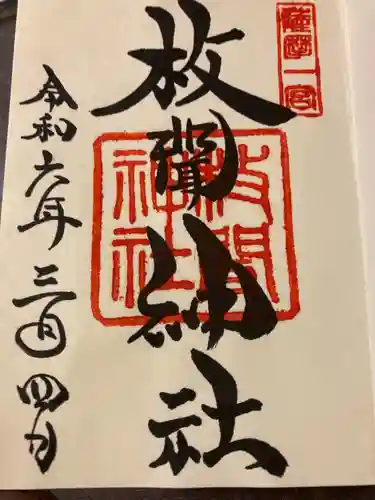 薩摩一宮
枚聞神社
枚聞神社
令和六年三月四日